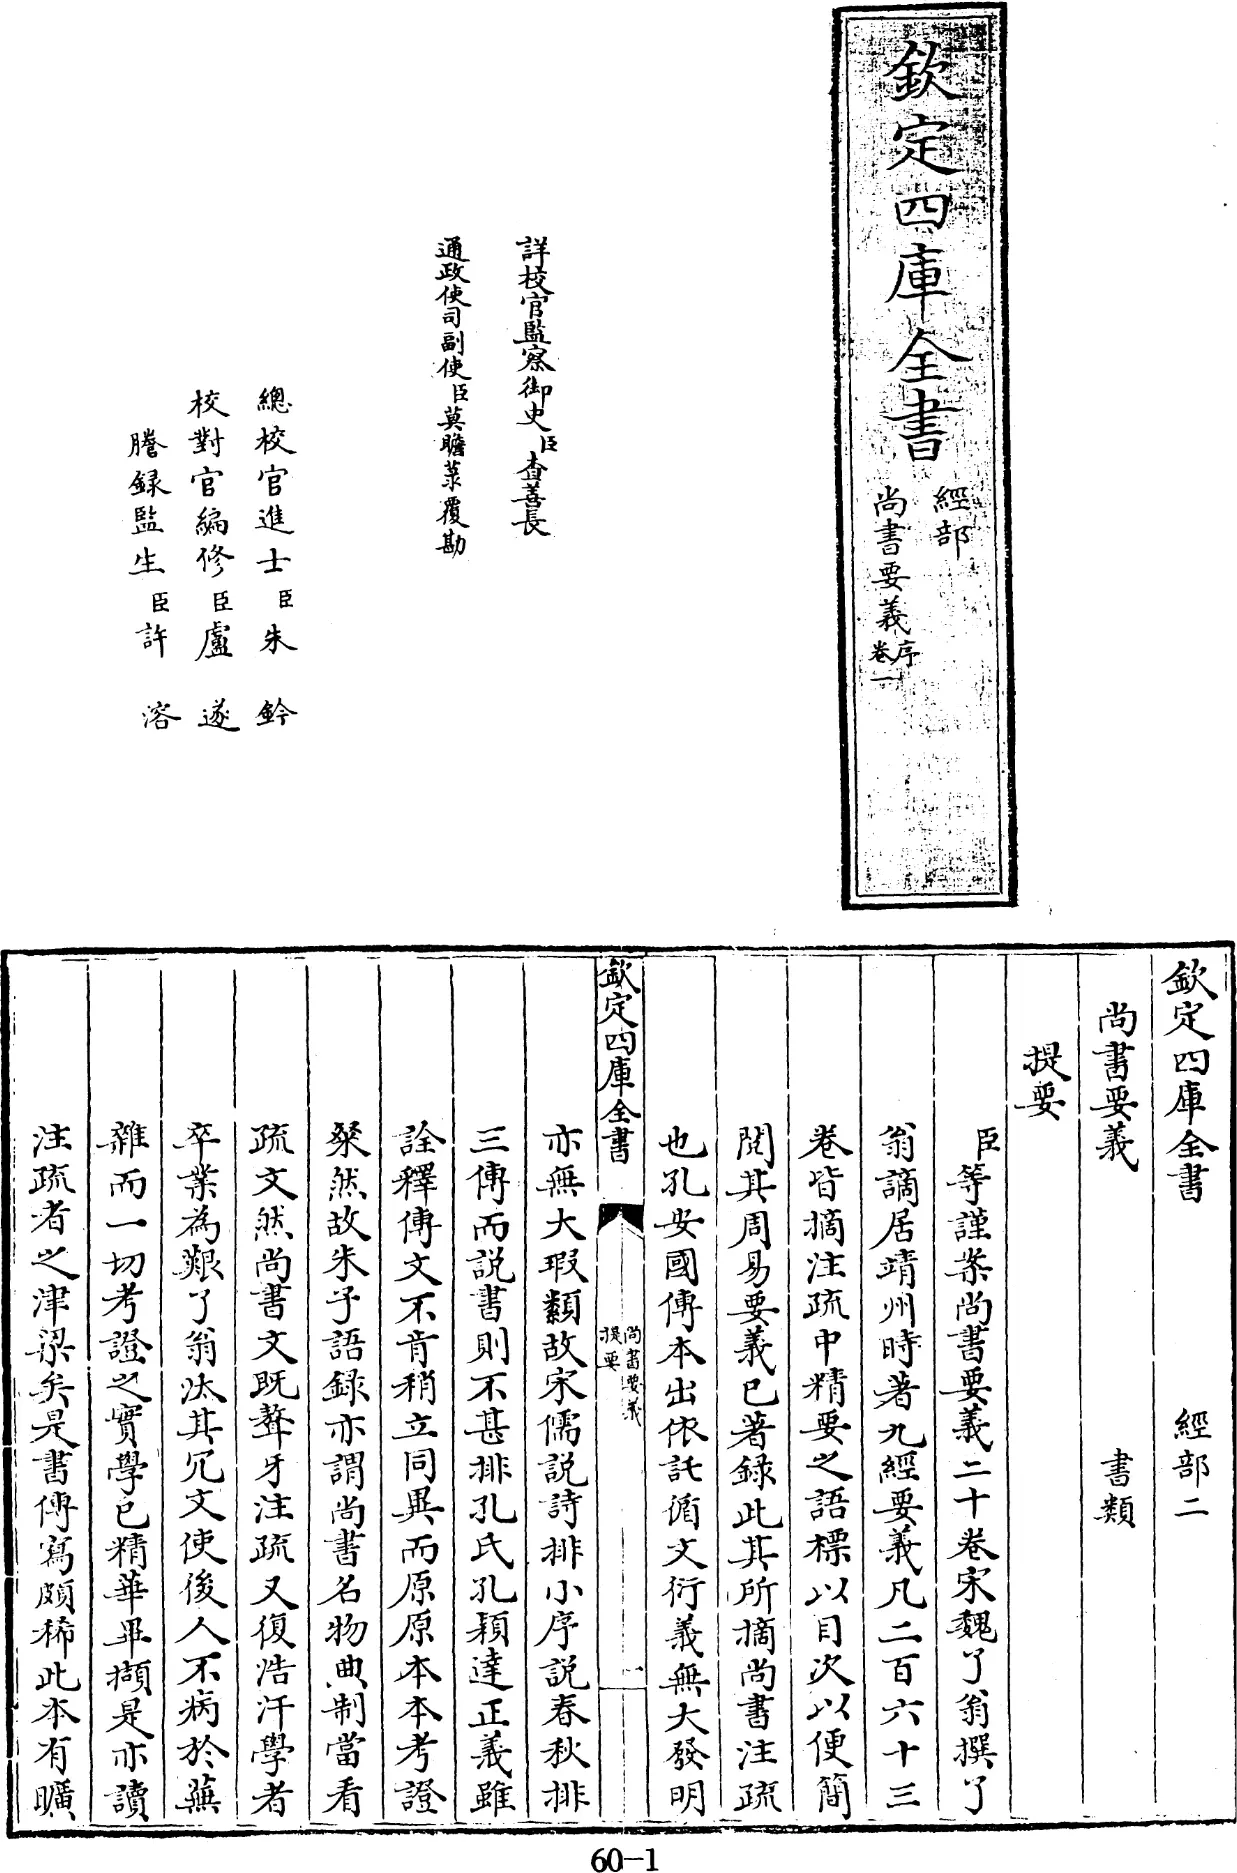 欽定四庫全書
經部
尚書要義
序
卷一
詳校官監察御史臣查善長
通政使司副使臣莫瞻菉覆勘
總校官進士臣朱鈐
校對官編修臣盧遂
謄錄監生臣許溶
欽定四庫全書 經部二
尚書要義 書類
提要
臣等謹案尚書要義二十卷宋魏了翁撰了
翁謫居靖州時著九經要義凡二百六十三
卷皆摘注疏中精要之語標以目次以便簡
閱其周易要義已著錄此其所摘尚書注疏
也孔安國傳本出依託循文衍義無大發明
欽定四庫全書
尚書要義
提要
一
亦無大瑕纇故宋儒說詩排小序說春秋排
三傳而說書則不甚排孔氏孔穎達正義雖
詮釋傳文不肯稍立同異而原原本本考證
粲然故朱子語錄亦謂尚書名物典制當看
疏文然尚書文既聱牙注疏又復浩汗學者
卒業為艱了翁汰其冗文使後人不病於蕪
雜而一切考證之實學已精華畢擷是亦讀
注疏者之津梁矣是書傳寫頗稀此本有曠
60-1